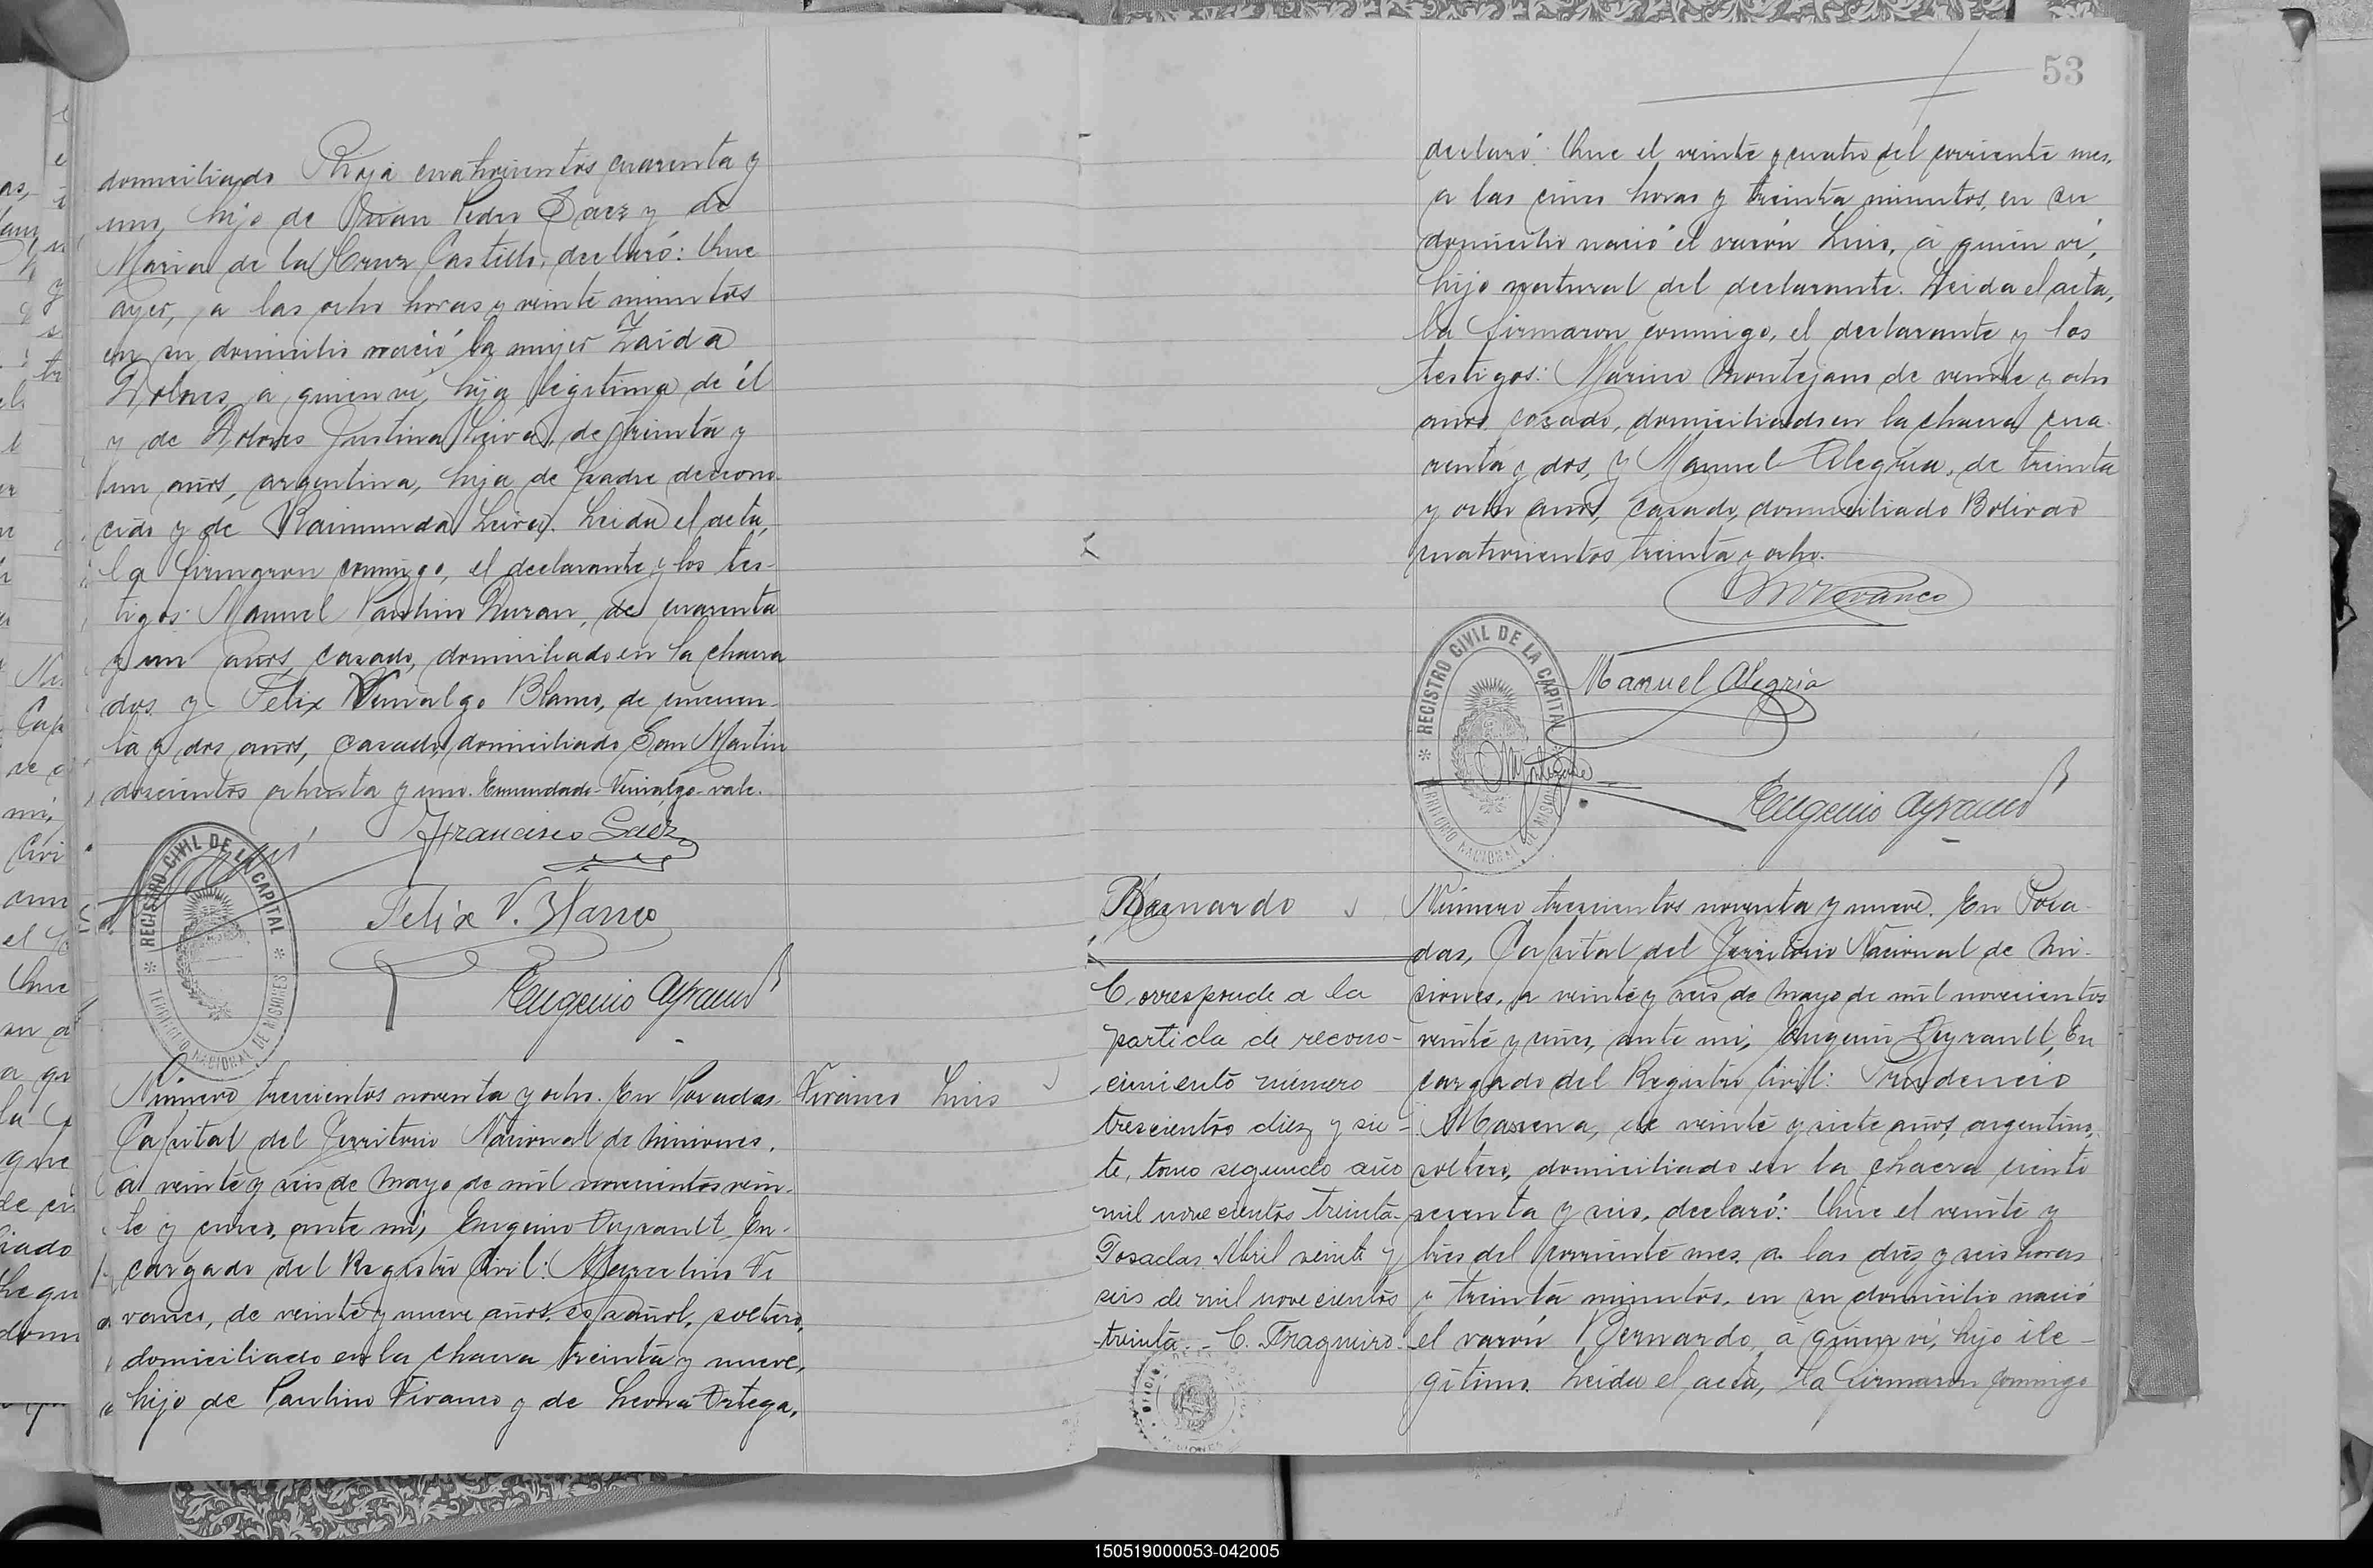 domiciliado Rioja cuatrocientos cuarenta y
uno, hijo de Juan Pedro Saez y de
Maria de la Cruz Castillo, declaró: Que
ayer, a las ocho horas y veinte minutos
en su domicilio nació la mujer Zaida
Dolores, á quien vi, hija legitima de él
y de Dolores Justina Leiva, de treinta y
un años, argentina, hija de padre descono-
cido y de Raimunda Leiva. Leida el acta,
la firmaron conmigo, el declarante y los tes-
tigos: Manuel Paulino Duran, de cuarenta
y un años, casado, domiciliado en la chacra
dos y Felix Vinialgo Blanco, de cincuen-
ta y dos años, casado, domiciliado San Martin
doscientos ochenta y uno. Enmendado-Vinialgo-vale.
Francisco Saez
Felix V. Blanco
Eugenio Ayrault
REGISTRO CIVIL DE LA CAPITAL
TERRITORIO NACIONAL DE MISIONES
Número trescientos noventa y ocho. En Posadas
Vivanco Luis
Capital del Territorio Nacional de Misiones,
á veinte y seis de Mayo de mil novecientos vein-
te y cinco, ante mi, Eugenio Ayrault, En-
cargado del Registro Civil: Marcelino Vi
vanco, de veinte y nueve años, español, soltero,
domiciliado en la chacra treinta y nueve,
hijo de Paulino Vivanco y de Leona Ortega,
53
declaró: Que el veinte y cuatro del corriente mes,
a las cinco horas y treinta minutos, en su
domicilio nació el varón Luis, á quien vi,
hijo natural del declarante. Leida el acta,
la firmaron conmigo, el declarante y los
testigos: Marino Montejano de veinte y ocho
años, casado, domiciliado en la chacra cua-
renta y dos, y Manuel Alegria, de treinta
y ocho años, casado, domiciliado Bolivar
cuatrocientos treinta y ocho.
M Vivanco
Manuel Alegria
Eugenio Ayrault
REGISTRO CIVIL DE LA CAPITAL
TERRITORIO NACIONAL DE MISIONES
Bernardo
Corresponde a la
partida de recono-
cimiento número
trescientos diez y sie-
te, tomo segundo año
mil novecientos treinta-
Posadas Abril veinte y
seis de mil novecientos
treinta. - C. Fragueiro
Número trescientos noventa y nueve. En Posa-
das, Capital del Territorio Nacional de Mi-
siones, a veinte y seis de Mayo de mil novecientos
veinte y cinco, ante mi, Eugenio Ayrault, En
cargado del Registro Civil: Prudencio
de veinte y siete años, argentino,
soltero, domiciliado en la chacra ciento
sesenta y seis, declaró: Que el veinte y
tres del corriente mes, a las diez y seis horas
y treinta minutos, en su domicilio nació
el varón Bernardo, á quien vi, hijo ile-
gitimo. Leida el acta, la firmaron conmigo
150519000053-042005